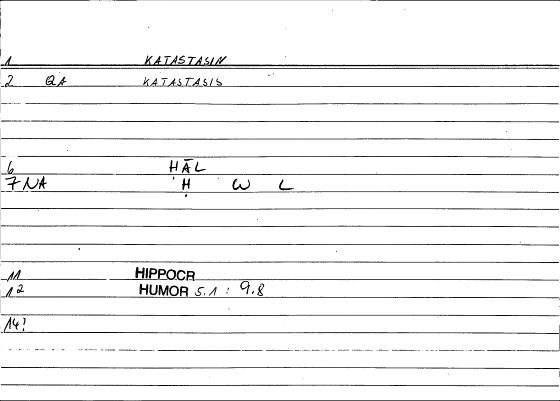 1 KATASTASIN
2 QA KATASTASIS
6 HĀL
7 NA Ḥ W L
11 HIPPOCR
12 HUMOR 5.1 : 9.8
14?